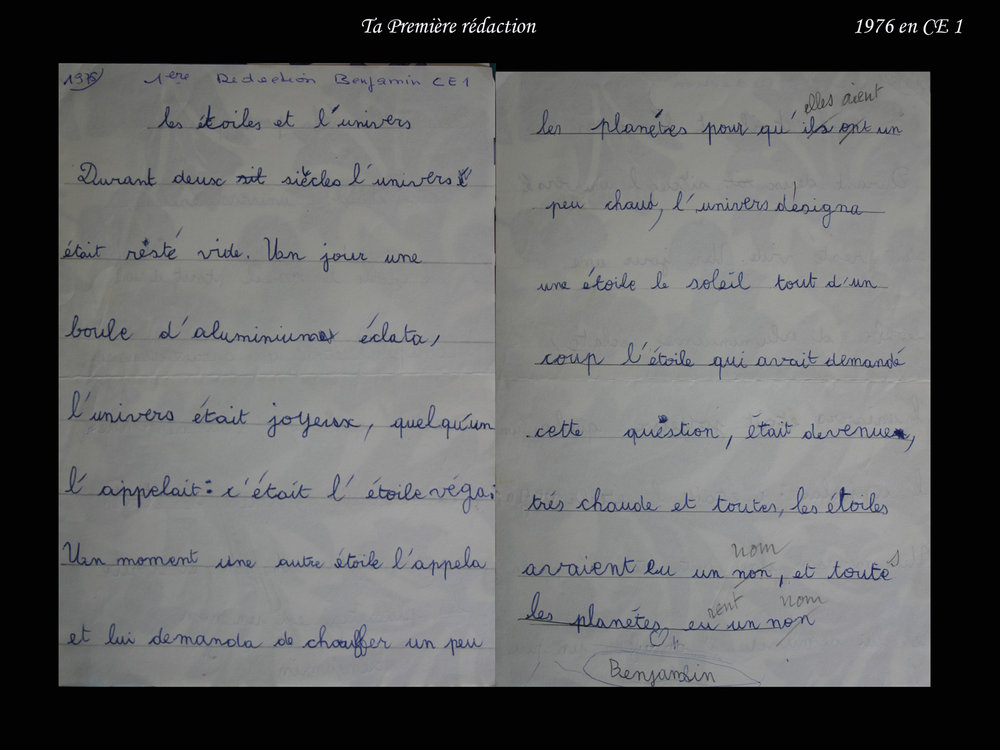 Ta Première rédaction
1976 en CE 1
1976 1ère Rédaction Benjamin CE1
les étoiles et l'univers
Durant deux siècles l'univers
était resté vide. Un jour une
boule d'aluminium éclata,
l'univers était joyeux, quelqu'un
l'appelait: c'était l'étoile véga.
Un moment une autre étoile l'appela
et lui demanda de chauffer un peu
elles aient
les planétes pour qu'ils ont un
peu chaud, l'univers désigna
une étoile le soleil tout d'un
coup l'étoile qui avait demandé
cette question, était devenue,
trés chaude et toutes, les étoiles
nom
avaient eu un non, et toutes
rent nom
les planétes eu un non
Benjamin